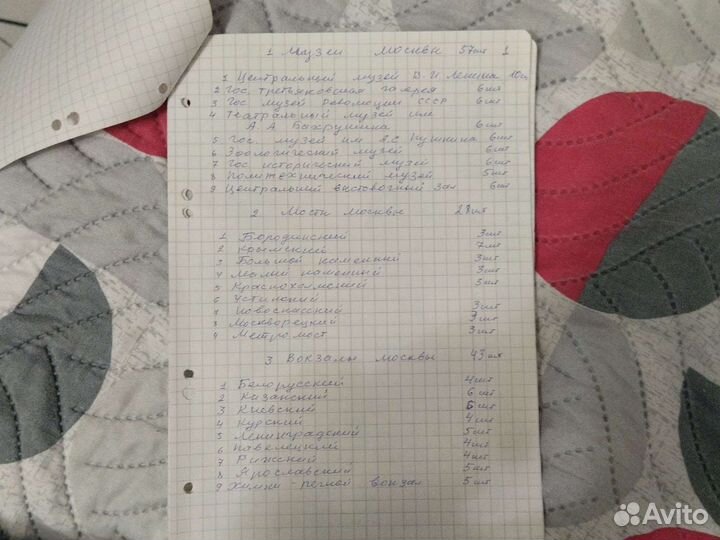 1 Музеи Москвы 57шт 1
1 Центральный музей В.И Ленина 10шт
2 Гос. Третьяковская галерея 6шт
3 Гос музей Революции СССР 6шт
4 Театральный музей им
А. А Бахрушина 6шт
5 Гос. музей им А.С Пушкина 6шт
6 Зоологический музей 6шт
7 Гос. исторический музей 6шт
8 Политехнический музей 5шт
9 Центральный выставочный зал 6шт
2 Мосты Москвы 28шт
1 Бородинский 3шт
2 Крымский 7шт
3 Большой каменный 3шт
4 Малый каменный 3шт
5 Краснохолмский 3шт
6 Устинский
7 Новоспасский 3шт
8 Москворецкий 3шт
9 Метромост 3шт
3 Вокзалы Москвы 43шт
1 Белорусский 4шт
2 Казанский 6шт
3 Киевский 6шт
4 Курский 4шт
5 Ленинградский 5шт
6 Павелецкий 4шт
7 Рижский 4шт
8 Ярославский 5шт
9 Химки - речной вокзал 5шт
Avito